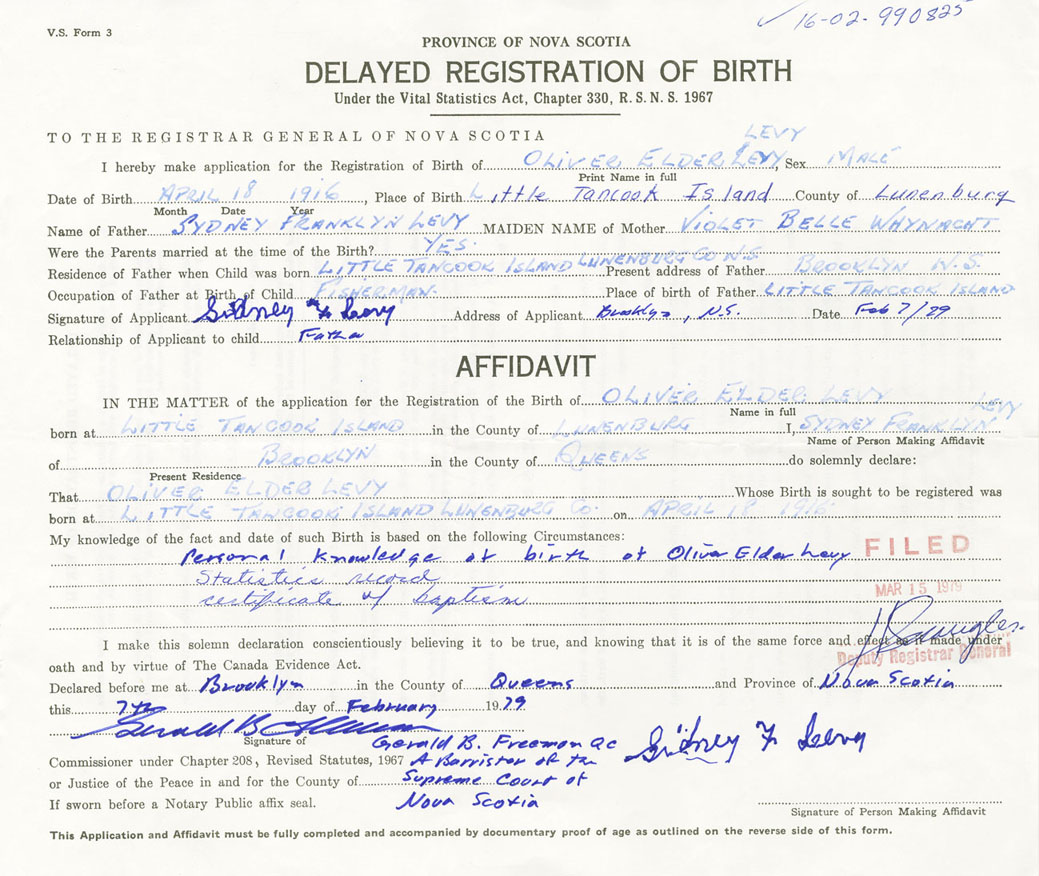 V.S. Form 3
✓ 16-02-990825
PROVINCE OF NOVA SCOTIA
DELAYED REGISTRATION OF BIRTH
Under the Vital Statistics Act, Chapter 330, R. S. N. S. 1967
TO THE REGISTRAR GENERAL OF NOVA SCOTIA
LEVY
I hereby make application for the Registration of Birth of OLIVER ELDER LEVY, Sex MALE
Print Name in full
Date of Birth APRIL 18 1916, Place of Birth Little Tancook Island County of Lunenburg
Month Date Year
Name of Father SYDNEY FRANKLYN LEVY MAIDEN NAME of Mother VIOLET BELLE WHYNACHT
Were the Parents married at the time of the Birth? YES.
Residence of Father when Child was born LITTLE TANCOOK ISLAND LUNENBURG CO N.S Present address of Father BROOKLYN N.S.
Occupation of Father at Birth of Child FISHERMAN. Place of birth of Father LITTLE TANCOOK ISLAND
Signature of Applicant Sidney F Levy Address of Applicant Brooklyn, N.S. Date Feb 7/79
Relationship of Applicant to child Father
AFFIDAVIT
IN THE MATTER of the application for the Registration of the Birth of OLIVER ELDER LEVY
Name in full LEVY
born at LITTLE TANCOOK ISLAND in the County of LUNENBURG I, SYDNEY FRANKLYN
Name of Person Making Affidavit
of BROOKLYN in the County of QUEENS do solemnly declare:
Present Residence
That OLIVER ELDER LEVY Whose Birth is sought to be registered was
born at LITTLE TANCOOK ISLAND LUNENBURG CO. on APRIL 18 1916
My knowledge of the fact and date of such Birth is based on the following Circumstances:
Personal knowledge of birth of Oliver Elder Levy FILED
Statistics record
MAR 15 1979
certificate of baptism
I make this solemn declaration conscientiously believing it to be true, and knowing that it is of the same force and effect as if made under
oath and by virtue of The Canada Evidence Act.
Deputy Registrar General
Declared before me at Brooklyn in the County of Queens and Province of Nova Scotia
this 7th day of February 1979
Signature of Gerald B. Freeman QC Sidney F Levy
Commissioner under Chapter 208, Revised Statutes, 1967 A Barrister of the
or Justice of the Peace in and for the County of Supreme Court of
If sworn before a Notary Public affix seal. Nova Scotia
Signature of Person Making Affidavit
This Application and Affidavit must be fully completed and accompanied by documentary proof of age as outlined on the reverse side of this form.